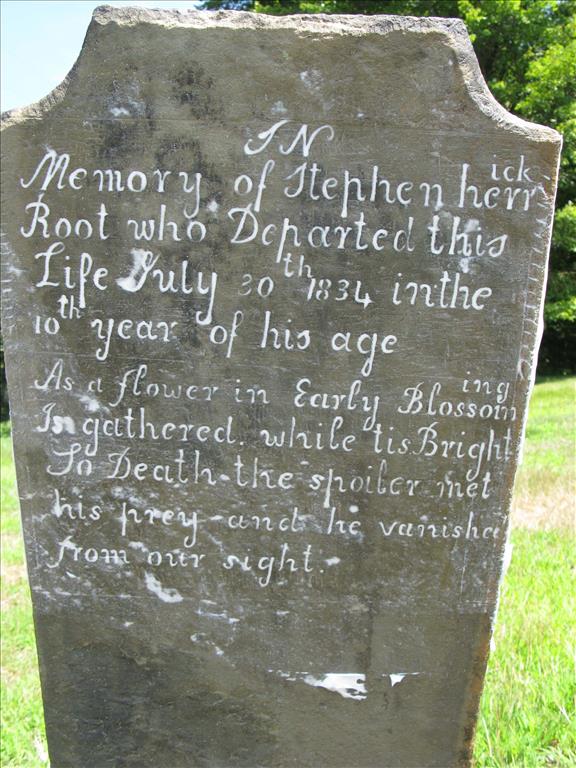 IN
Memory of Stephen herrick
Root who Departed this
Life July 30th 1834 in the
10th year of his age
As a flower in Early Blossoming
Is gathered. while tis Bright
So Death the spoiler met
his prey and he vanished
from our sight.